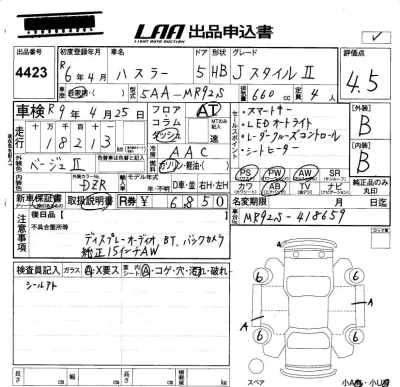 LAA 出品申込書
LIGHT AUTO AUCTION
出品番号
4423
初度登録年月
R6年4月
車名
ハスラー
ドア
5HB
グレード
Jスタイル II
評価点
4.5
車歴
自家用・( )
型式
5AA-MR92S
排気量
660 cc
定員
4人
車検 R9年4月25日
フロア
コラム
ダッシュ
AT
MTのみ
速
セールスポイント
・スマートキー
・LEDオートライト
・レーダークルーズコントロール
・シートヒーター
【外装】
B
【内装】
B
走行
十万 万 千 百 十
18213
冷房
AAC
外装色
ベージュ II
色替
燃料
ガソリン・軽油・( )
内装色
カラーNo
DZR
モデル年式
年・不明
D車・並 右H・左H
PS PW AW SR
カワ AB TV ナビ
純正品のみ
丸印
新車保証書
取扱説明書
R券 ¥ 6850
名変期限 月 日迄
MR92S-418659
注意事項
後日品【 】
不具合箇所等
ディスプレーオーディオ, BT, バックカメラ
純正15インチAW
検査員記入
ガラス A・X要ス
内シート A・コゲ・穴・汚れ・破れ
シールアト
A
A
6
6
6
6
スペア
長さ cm 幅 cm 高さ cm 積載量 kg